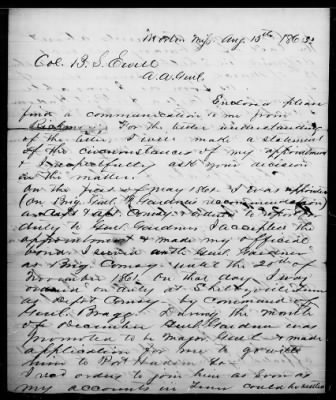 Morton Miss. Aug. 15th 1863
Col. B. S. Ewell
A. A. Genl.
Enclosed please
find communication to me from
Richmond. For the better understanding
of the letter I will make a statement
of the circumstances of my appointment
& respectfully ask your decision
in the matter.
On the first of May 1862 I was appointed
(on Brig Genl F. Gardner's recommendation)
as Capt & Asst Comsy & ordered to report for
duty to Genl Gardner. I accepted the
appointment & made my official
bond. I served with Genl Gardner
as Brig Comsy until the 20th of
November 1862. On that day I was
ordered on duty at Shelbyville Tenn
as Depot Comsy by command of
Genl Bragg. During the month
of December Genl Gardner was
promoted to be Major Genl & made
application for me to go with
him to Port Hudson La.
I had orders to join him as soon as
my accounts in Tenn could be settled